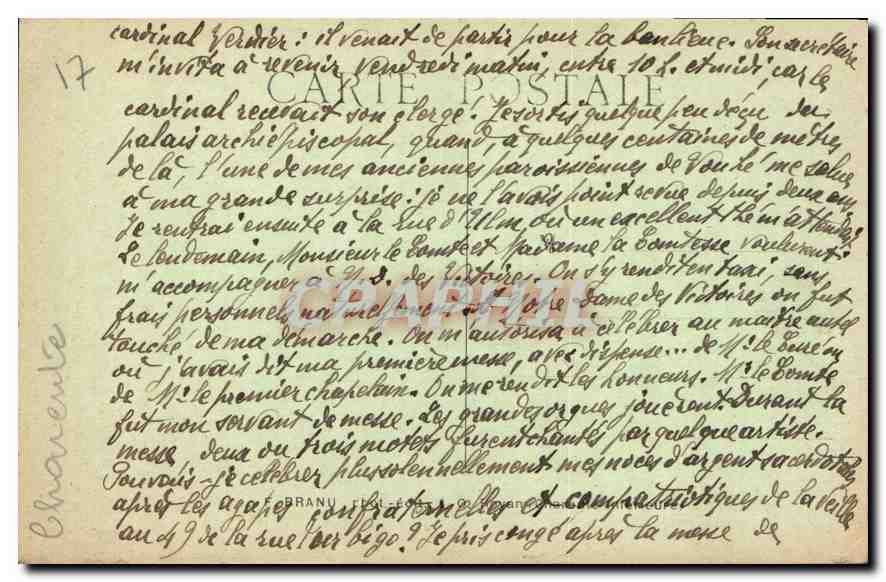 cardinal Verdier : il venait de partir pour la banlieue. Son secrétaire
17
m'invita à revenir vendredi matin, entre 10 h. et midi, car le
CARTE POSTALE
cardinal recevait son clergé. Je sortis quelque peu déçu du
palais archiépiscopal, quand, à quelques centaines de mètres
de là, l'une de mes anciennes paroissiennes de me salua
à ma grande surprise : je ne l'avais point revue depuis deux ans
Je rentrai ensuite à la rue d'Ulm où un excellent thé m'attendait
Le lendemain, Monsieur le Comte et Madame la Comtesse voulurent
m'accompagner à N. D. des Victoires. On s'y rendit en taxi, sans
frais personnels A Notre Dame des Victoires on fut
CPAPHIL
touché de ma démarche. On m'autorisa à célébrer au maître autel
où j'avais dit ma première messe, avec dispense... de Mr. le Curé ou
de Mr. le premier chapelain. On me rendit les honneurs. Mr. le Comte
fut mon servant de messe. Les grandes orgues jouèrent. Durant la
messe deux ou trois motets furent chantés par quelque artiste.
Pouvais-je célébrer plus solennellement mes noces d'argent sacerdotales
F. BRANU
après les agapes confraternelles et compatriotiques de la veille
au 49 de la rue ? Je pris congé après la messe de
Charente